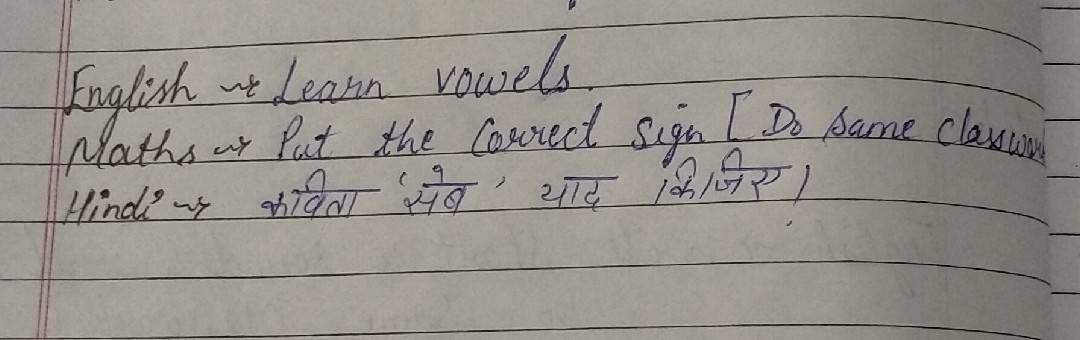 English → Learn vowels.
Maths → Put the Correct Sign [ Do same classwor
Hindi → कविता 'सेब' याद किजिए।